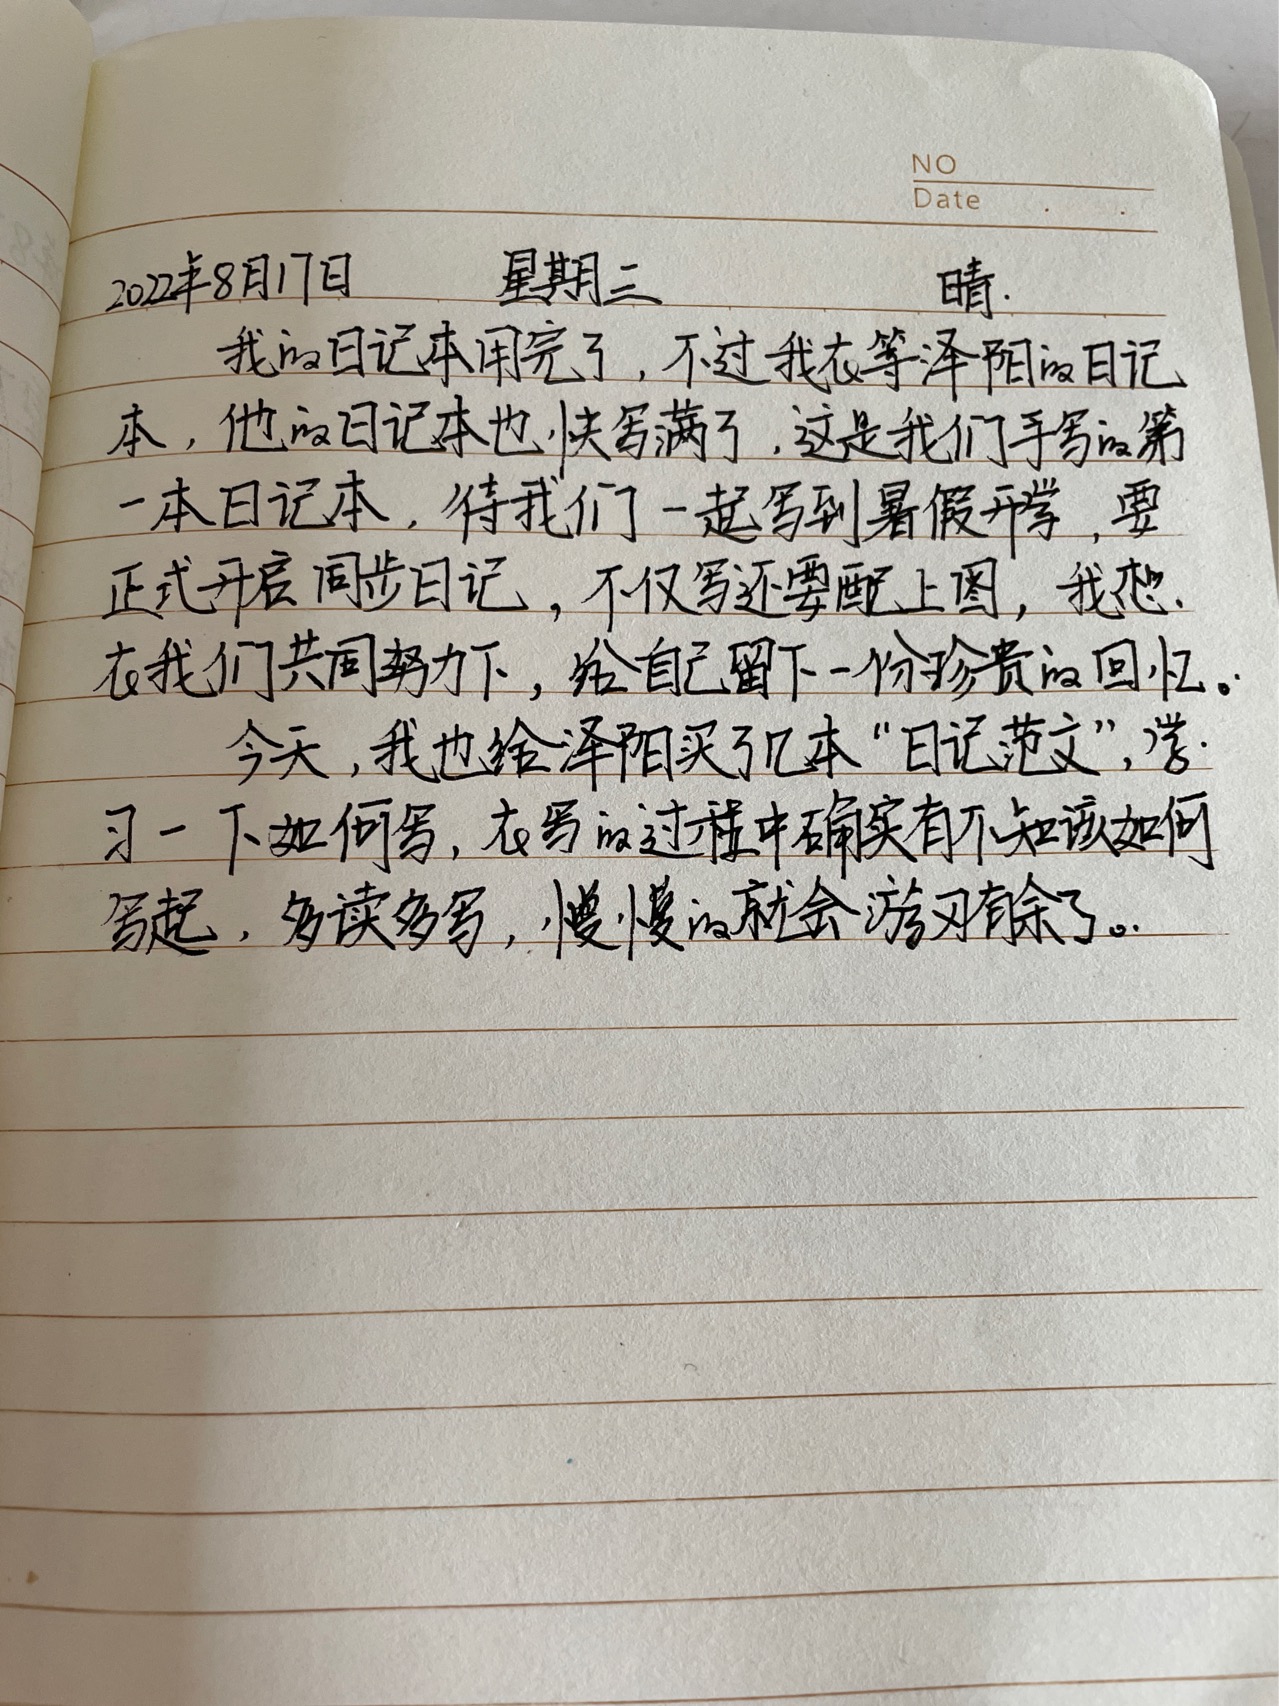 NO
Date . .
2022年8月17日 星期三 晴.
我的日记本用完了,不过我在等泽阳的日记
本,他的日记本也快写满了,这是我们手写的第
一本日记本,待我们一起写到暑假开学,要
正式开启同步日记,不仅写还要配上图,我想.
在我们共同努力下,给自己留下一份珍贵的回忆。
今天,我也给泽阳买了几本“日记范文”,学
习一下如何写,在写的过程中确实有不知该如何
写起,多读多写,慢慢的就会游刃有余了。